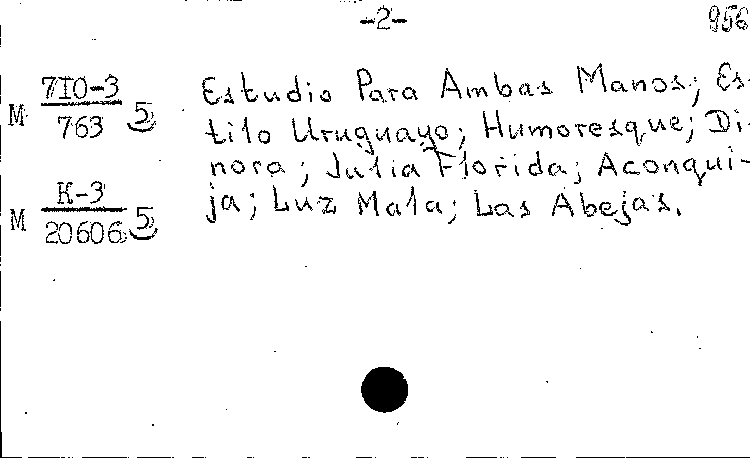 -2- 956
M 710-3 / 763 5
Estudio Para Ambas Manos; Es-
tilo Uruguayo; Humoresque; Di-
nora; Julia Florida; Aconqui-
ja; Luz Mala; Las Abejas.
M K-3 / 20606 5